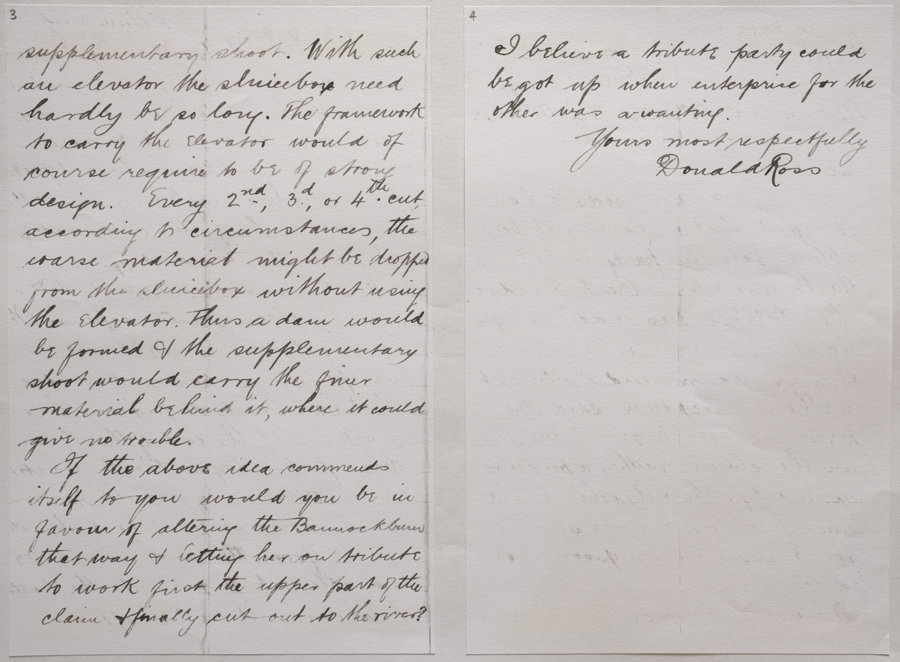 3
supplementary shoot. With such
an elevator the sluicebox need
hardly be so long. The framework
to carry the elevator would of
course require to be of strong
design. Every 2nd, 3d, or 4th cut,
according to circumstances, the
coarse material might be dropped
from the sluicebox without using
the elevator. Thus a dam would
be formed & the supplementary
shoot would carry the finer
material behind it, where it could
give no trouble.
If the above idea commends
itself to you would you be in
favour of altering the Bannockburn
that way & letting her on tribute
to work first the upper part of the
claim & finally cut out to the river?
4
I believe a tribute party could
be got up when enterprise for the
other was awanting.
Yours most respectfully
Donald Ross